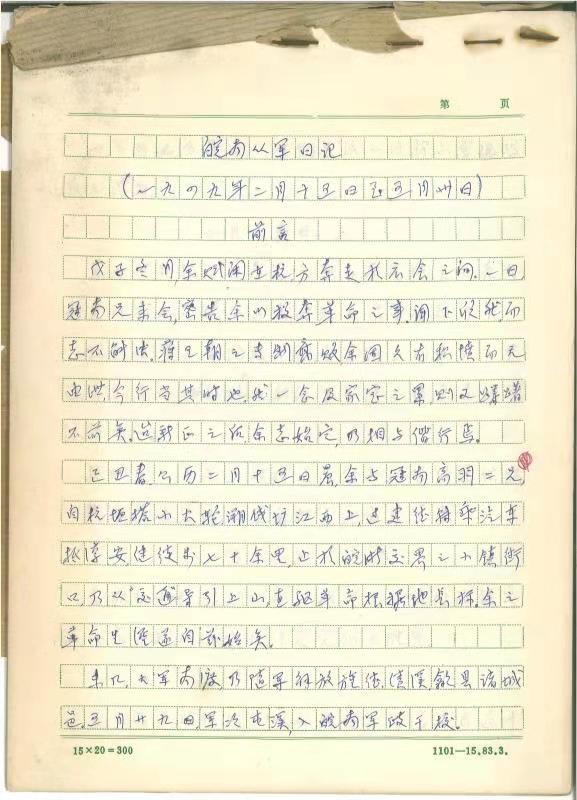 第 页
皖南从军日记
(一九四九年二月十五日至五月卅日)
前言
戊子冬月,余赋闲在杭,方奔走于衣食之间。一日
冠南兄来会,密告余以投奔革命之事。闻下欣然,而
志不能决。蒋王朝之专制腐败余固久有积愤而无
由泄,今行当其时也,然一念及家室之累,则又踌躇
不前矣。迨新正之后,余志始定,乃相与偕行焉。
己丑春,公历二月十五日晨,余与冠南高羽二兄,
自杭垣搭小火轮溯钱塘江西上,过建德转乘汽车
抵淳安,继徒步七十余里,止于皖浙交界之小镇街
口,乃从"交通"导引上山,直驱革命根据地长标。余之
革命生涯遂自兹始矣。
未几,大军南渡,乃随军解放旌德、绩溪、歙县诸城
邑。五月廿九日,军次屯溪,入皖南军政干校。
15×20=300
1101—15.83.3.